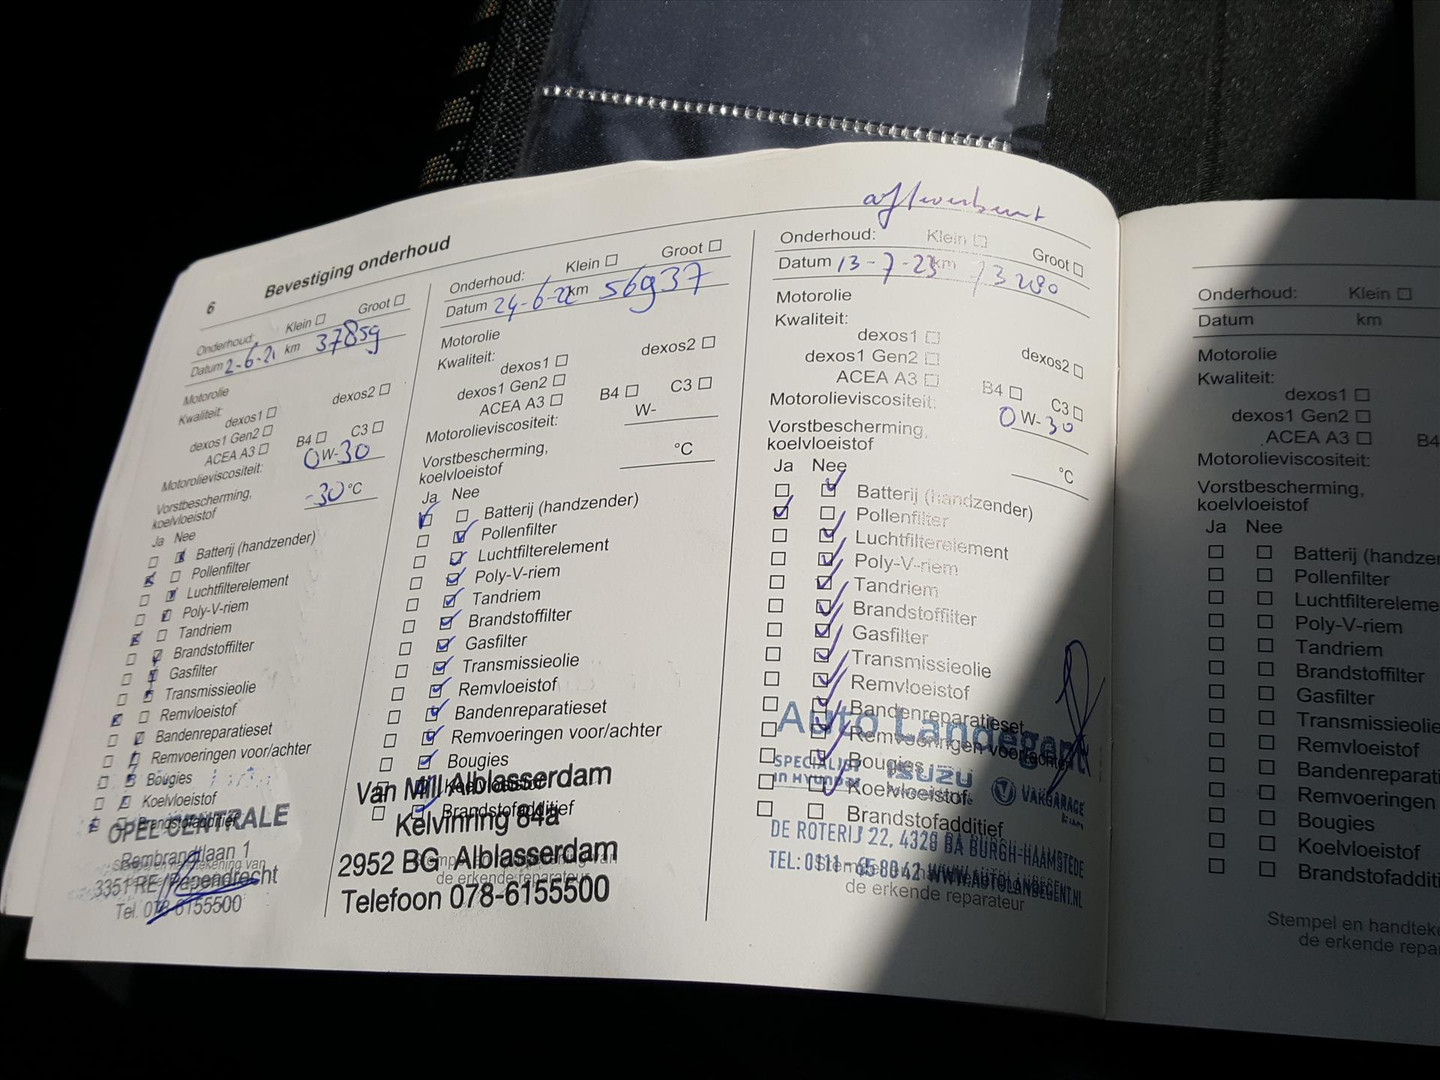 6 Bevestiging onderhoud
Onderhoud: Klein Groot
Datum 2-6-21 km 37859
Motorolie
Kwaliteit:
dexos1 dexos2
dexos1 Gen2
ACEA A3 B4 C3
Motorolieviscositeit: 0 W-30
Vorstbescherming, koelvloeistof -30 °C
Ja Nee
Batterij (handzender)
Pollenfilter
Luchtfilterelement
Poly-V-riem
Tandriem
Brandstoffilter
Gasfilter
Transmissieolie
Remvloeistof
Bandenreparatieset
Remvoeringen voor/achter
Bougies
Koelvloeistof
Brandstofadditief
OPEL CENTRALE
Rembrandtlaan 1
3351 RE Papendrecht
Tel. 078-6155500
Onderhoud: Klein Groot
Datum 24-6-22 km 56937
Motorolie
Kwaliteit:
dexos1 dexos2
dexos1 Gen2
ACEA A3 B4 C3
Motorolieviscositeit: W-
Vorstbescherming,
koelvloeistof °C
Ja Nee
Batterij (handzender)
Pollenfilter
Luchtfilterelement
Poly-V-riem
Tandriem
Brandstoffilter
Gasfilter
Transmissieolie
Remvloeistof
Bandenreparatieset
Remvoeringen voor/achter
Bougies
Koelvloeistof
Brandstofadditief
Van Mill Alblasserdam
Kelvinring 84a
2952 BG Alblasserdam
Telefoon 078-6155500
Stempel en handtekening van
de erkende reparateur
Onderhoud: Klein Groot
Datum 13-7-23 km 73290
Motorolie
Kwaliteit:
dexos1 dexos2
dexos1 Gen2
ACEA A3 B4 C3
Motorolieviscositeit: 0 W-30
Vorstbescherming,
koelvloeistof °C
Ja Nee
Batterij (handzender)
Pollenfilter
Luchtfilterelement
Poly-V-riem
Tandriem
Brandstoffilter
Gasfilter
Transmissieolie
Remvloeistof
Bandenreparatieset
Remvoeringen voor/achter
Bougies
Koelvloeistof
Brandstofadditief
Auto Landegent
SPECIALIST in Hyundai ISUZU VAKGARAGE
DE ROTERIJ 22, 4328 BA BURGH-HAAMSTEDE
TEL: 0111-65 80 42 WWW.AUTOLANDEGENT.NL
de erkende reparateur
Onderhoud: Klein
Datum km
Motorolie
Kwaliteit:
dexos1
dexos1 Gen2
ACEA A3 B4
Motorolieviscositeit:
Vorstbescherming,
koelvloeistof
Ja Nee
Batterij (handze
Pollenfilter
Luchtfiltereleme
Poly-V-riem
Tandriem
Brandstoffilter
Gasfilter
Transmissieolie
Remvloeistof
Bandenreparati
Remvoeringen
Bougies
Koelvloeistof
Brandstofadditi
Stempel en handteke
de erkende repa